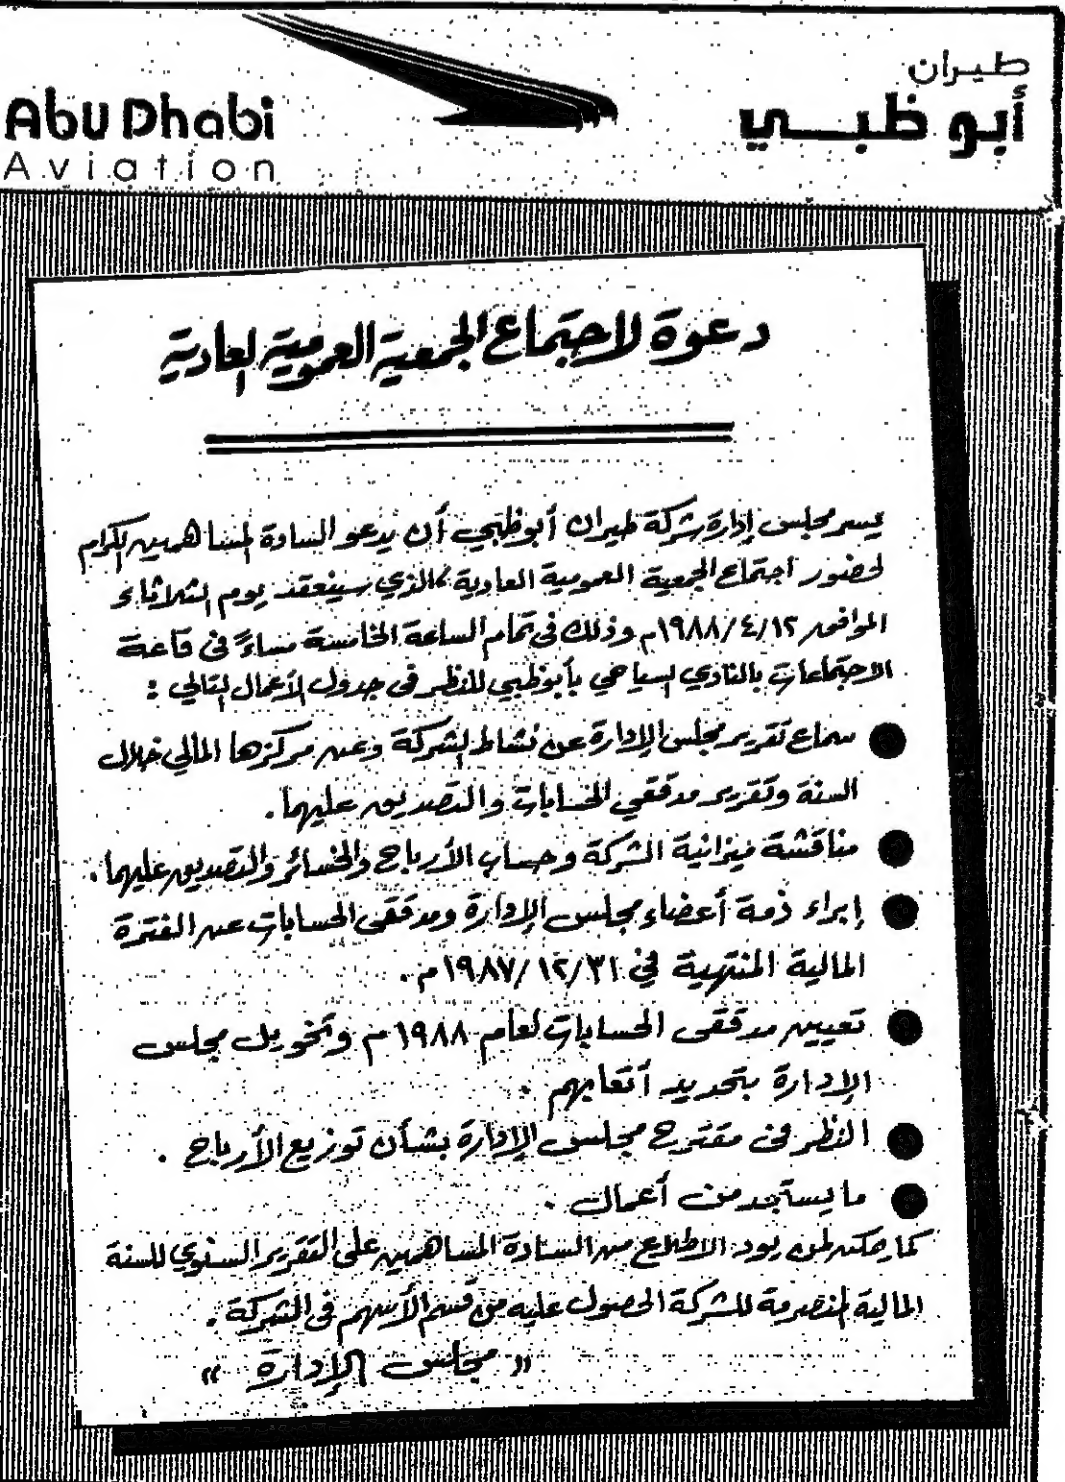 طيران
أبوظبي
Abu Dhabi
Aviation
دعوة لاجتماع الجمعية العمومية العادية
يسر مجلس إدارة شركة طيران أبوظبي أن يدعو السادة المساهمين الكرام
لحضور اجتماع الجمعية العمومية العادية، الذي سينعقد يوم الثلاثاء
الموافق ١٩٨٨/٤/١٢م وذلك في تمام الساعة الخامسة مساءً في قاعة
الاجتماعات بالنادي السياحي بأبوظبي للنظر في جدول الأعمال التالي :
● سماع تقرير مجلس الإدارة عن نشاط الشركة وعن مركزها المالي خلال
السنة وتقرير مدققي الحسابات والتصديق عليهما .
● مناقشة ميزانية الشركة وحساب الأرباح والخسائر والتصديق عليهما .
● إبراء ذمة أعضاء مجلس الإدارة ومدققى الحسابات عن الفترة
المالية المنتهية في ١٩٨٧/١٢/٣١م .
● تعيين مدققى الحسابات لعام ١٩٨٨م وتخويل مجلس
الإدارة بتحديد أتعابهم .
● النظر فى مقترح مجلس الإدارة بشأن توزيع الأرباح .
● ما يستجد من أعمال .
كما يمكن لمن يود الاطلاع من السادة المساهمين على التقرير السنوي للسنة
المالية المنصرمة للشركة الحصول عليه من قسم الأسهم فى الشركة .
« مجلس الإدارة »